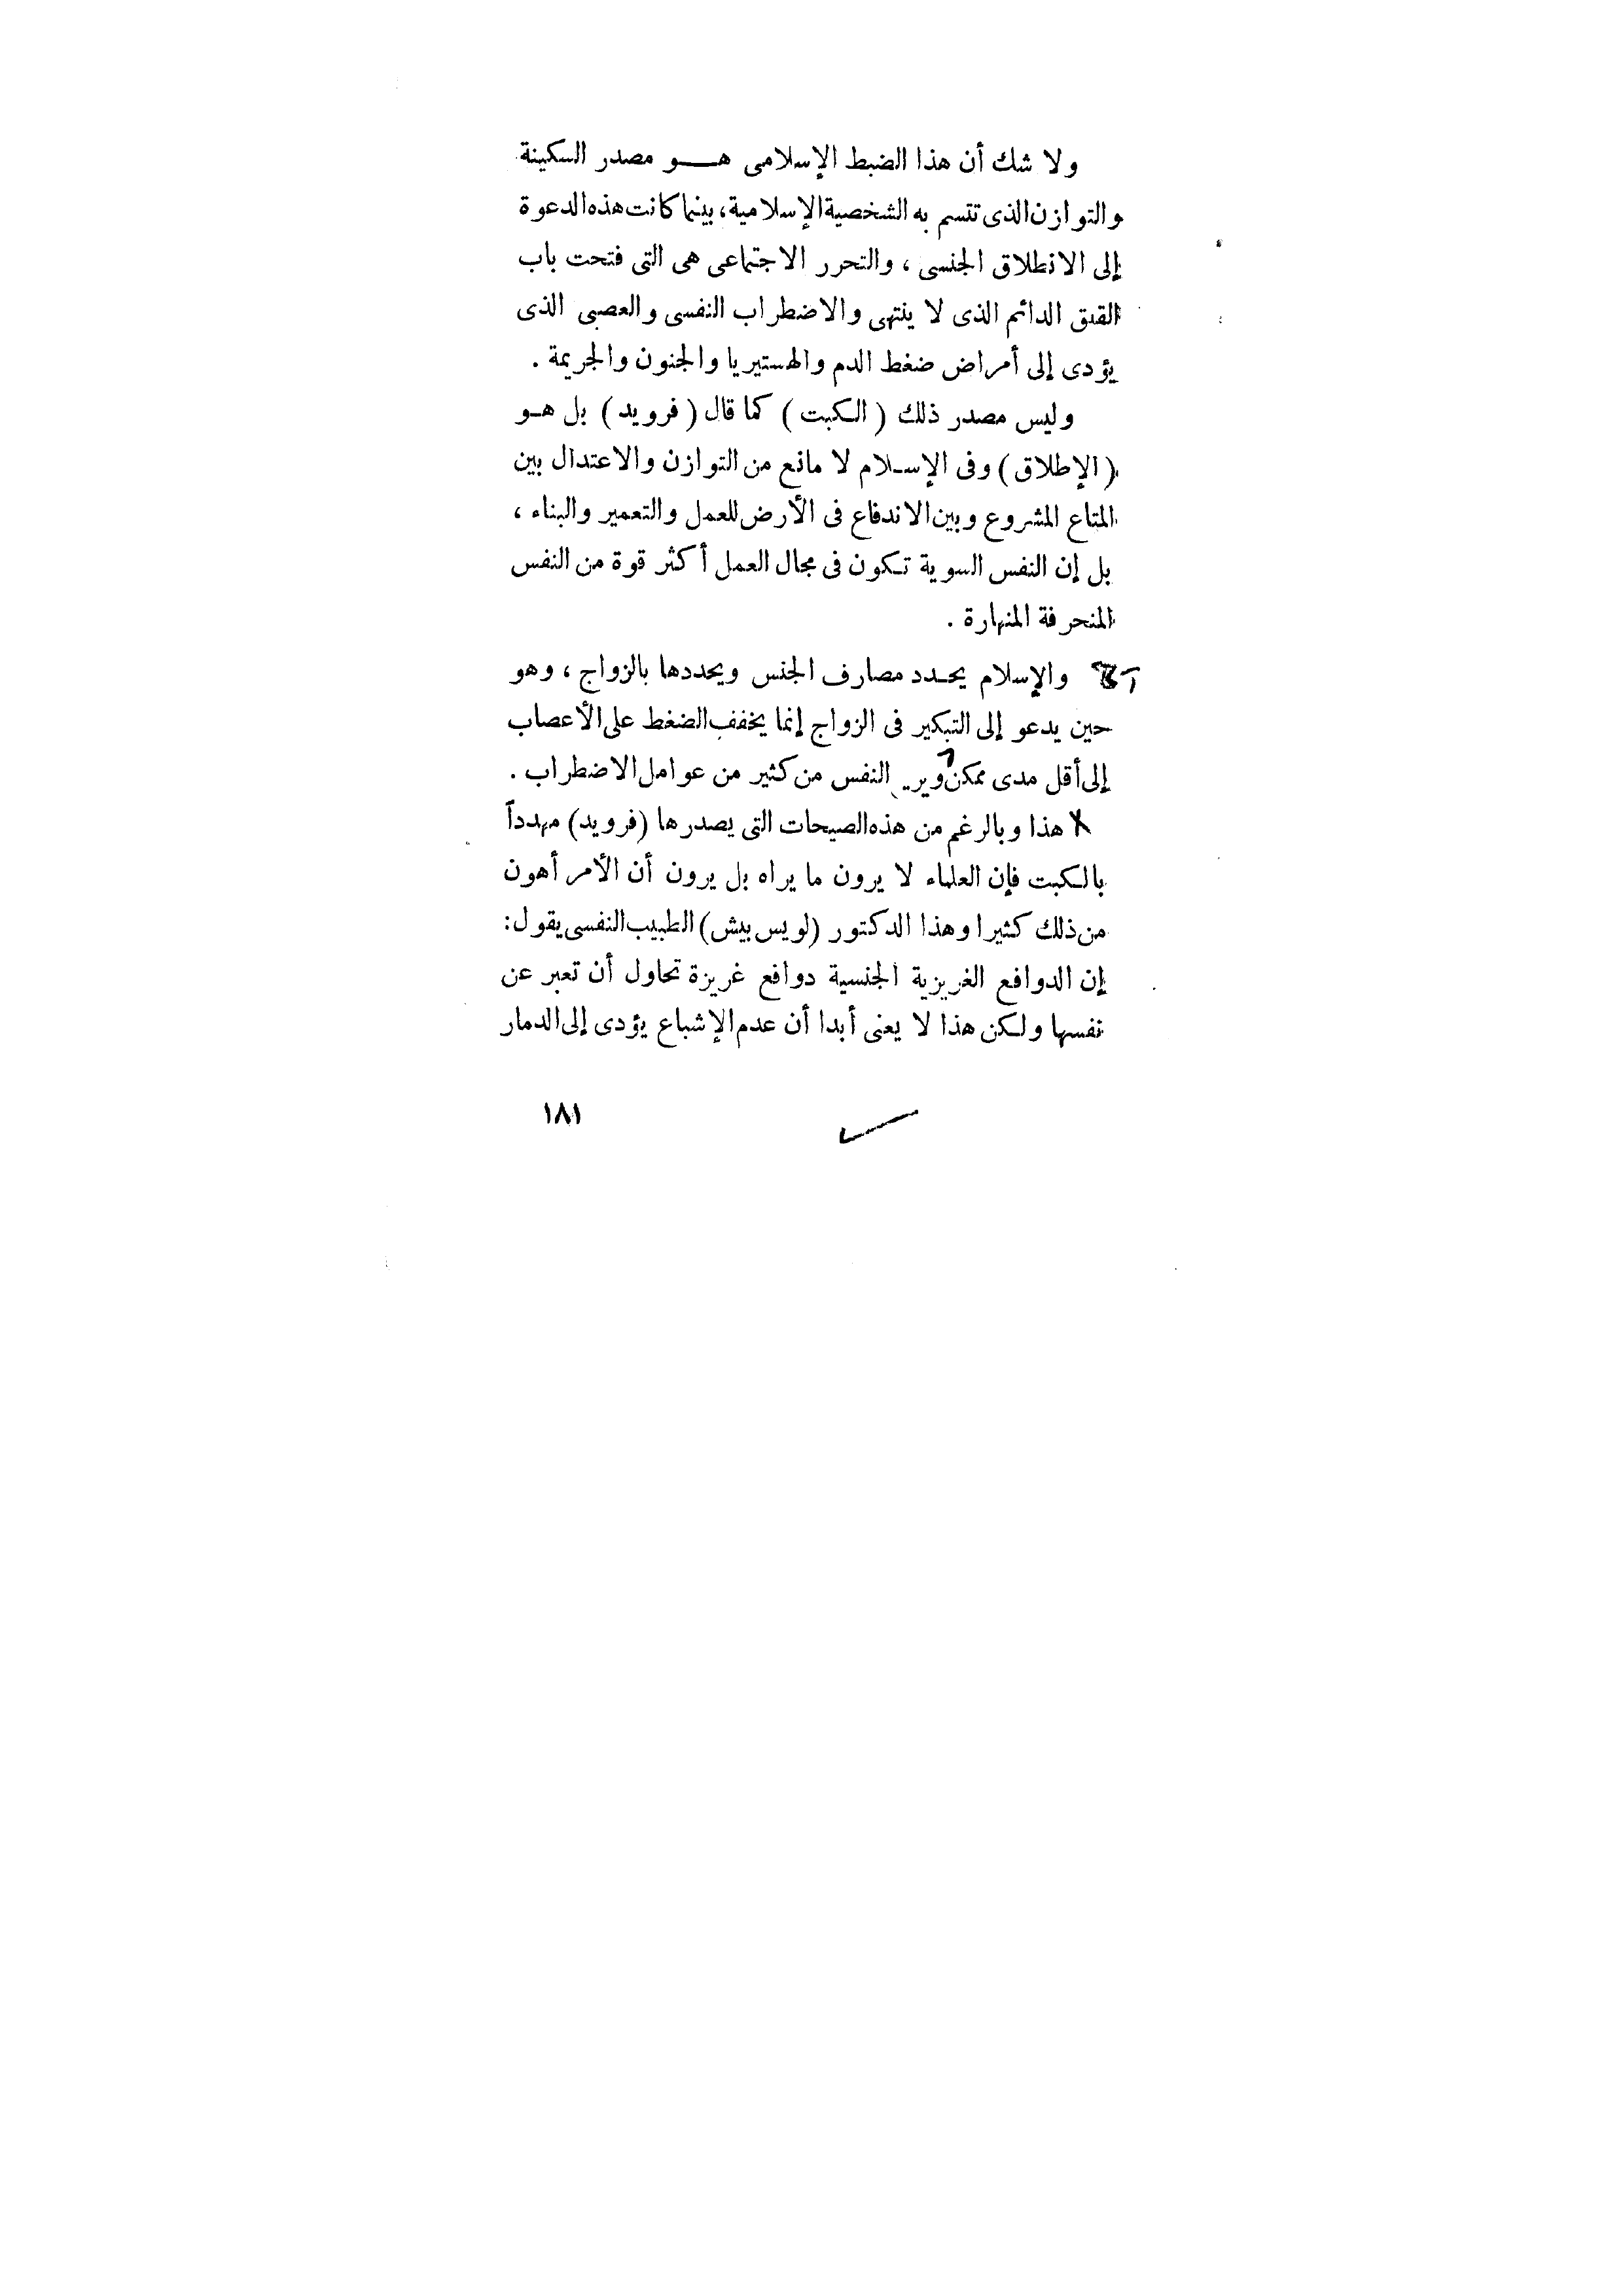 ولا شك أن هذا الضبط الإسلامى هـــو مصدر السكينة
والتوازن الذى تتسم به الشخصية الإسلامية، بينما كانت هذه الدعوة
إلى الانطلاق الجنسى ، والتحرر الاجتماعى هى التى فتحت باب
القلق الدائم الذى لا ينتهى والاضطراب النفسى والعصبى الذى
يؤدى إلى أمراض ضغط الدم والهستيريا والجنون والجريمة .
وليس مصدر ذلك ( الكبت ) كما قال ( فرويد ) بل هـو
( الإطلاق ) وفى الإسـلام لا مانع من التوازن والاعتدال بين
المتاع المشروع وبين الاندفاع فى الأرض للعمل والتعمير والبناء ،
بل إن النفس السوية تكون فى مجال العمل أكثر قوة من النفس
المنحرفة المنهارة .
والإسلام يحـدد مصارف الجنس ويحددها بالزواج ، وهو
حين يدعو إلى التبكير فى الزواج إنما يخفف الضغط على الأعصاب
إلى أقل مدى ممكن النفس من كثير من عوامل الاضطراب .
هذا وبالرغم من هذه الصيحات التى يصدرها (فرويد) مهدداً
بالكبت فإن العلماء لا يرون ما يراه بل يرون أن الأمر أهون
من ذلك كثيرا وهذا الدكتور (لويس بيش) الطبيب النفسى يقول:
إن الدوافع الغريزية الجنسية دوافع غريزة تحاول أن تعبر عن
نفسها ولكن هذا لا يعنى أبدا أن عدم الإشباع يؤدى إلى الدمار
١٨١